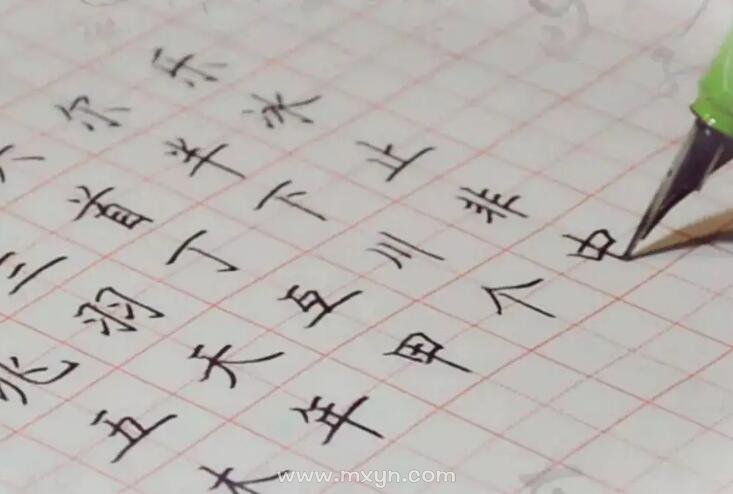 尔乐
三首半
兆羽丁下止
五天互川非
年甲个中
www.mxyn.com